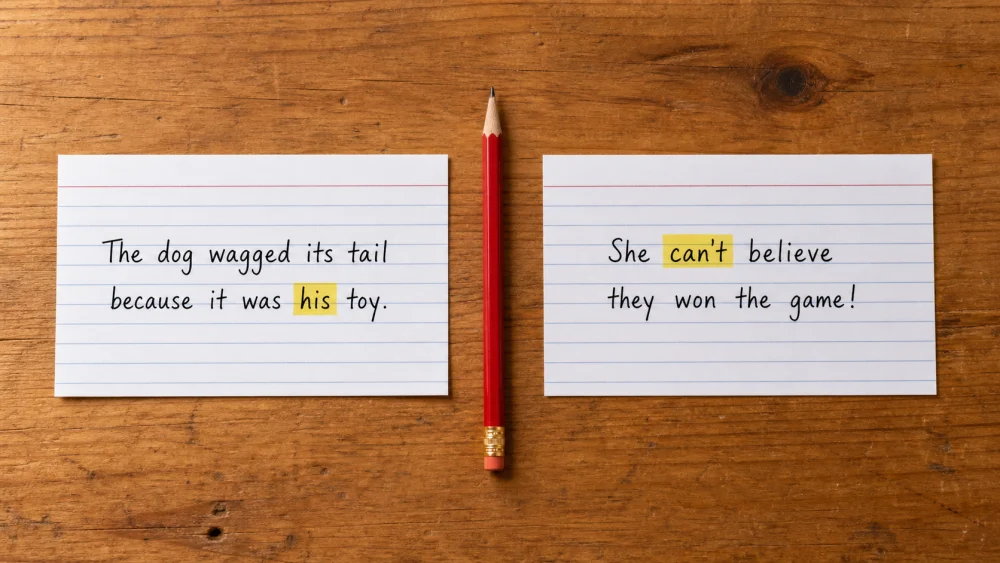 The dog wagged its tail
because it was his toy.
She can't believe
they won the game!